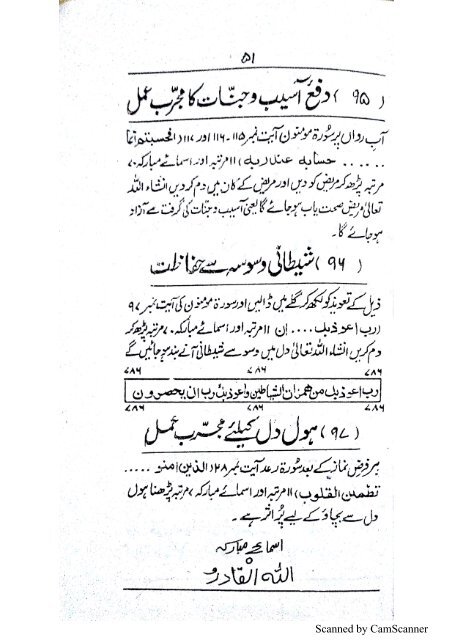 ۵۱
(۹۵) دفع آسیب و جنّات کا مجرّب عمل
آب رواں پر سورۃ مومنون آیت نمبر ۱۱۵۔۱۱۶ اور ۱۱۷ (افحسبتم انما
...... حسابه عند ربه) ۱۱ مرتبہ اور اسمائے مبارکہ ۷
مرتبہ پڑھ کر مریض کو دیں اور مریض کے کان میں دم کر دیں انشاء اللہ
تعالیٰ مریض صحت یاب ہو جائے گا یعنی آسیب و جنات کی گرفت سے آزاد
ہو جائے گا۔
(۹۶) شیطانی وسوسہ سے حفاظت
ذیل کے تعویذ کو لکھ کر گلے میں ڈالیں اور سورۃ مومنون کی آیت نمبر ۹۷
(رب اعوذ بک .... ان) ۱۱ مرتبہ اور اسمائے مبارکہ ۷ مرتبہ پڑھ کر
دم کریں انشاء اللہ تعالیٰ دل میں وسوسے شیطانی آنے بند ہو جائیں گے
۷۸۶ ۷۸۶ ۷۸۶
رب اعوذ بک من همزات الشیاطین واعوذ بک رب ان یحضرون
۷۸۶ ۷۸۶ ۷۸۶
(۹۷) ہول دل کیلئے مجرّب عمل
ہر فرض نماز کے بعد سورۃ رعد آیت نمبر ۲۸ (الذین امنو .....
تطمئن القلوب) ۱۱ مرتبہ اور اسمائے مبارکہ ۷ مرتبہ پڑھنا ہول
دل سے بچاؤ کے لیے پُر اثر ہے۔
اسمائے مبارکہ
اللہ القادرو
Scanned by CamScanner